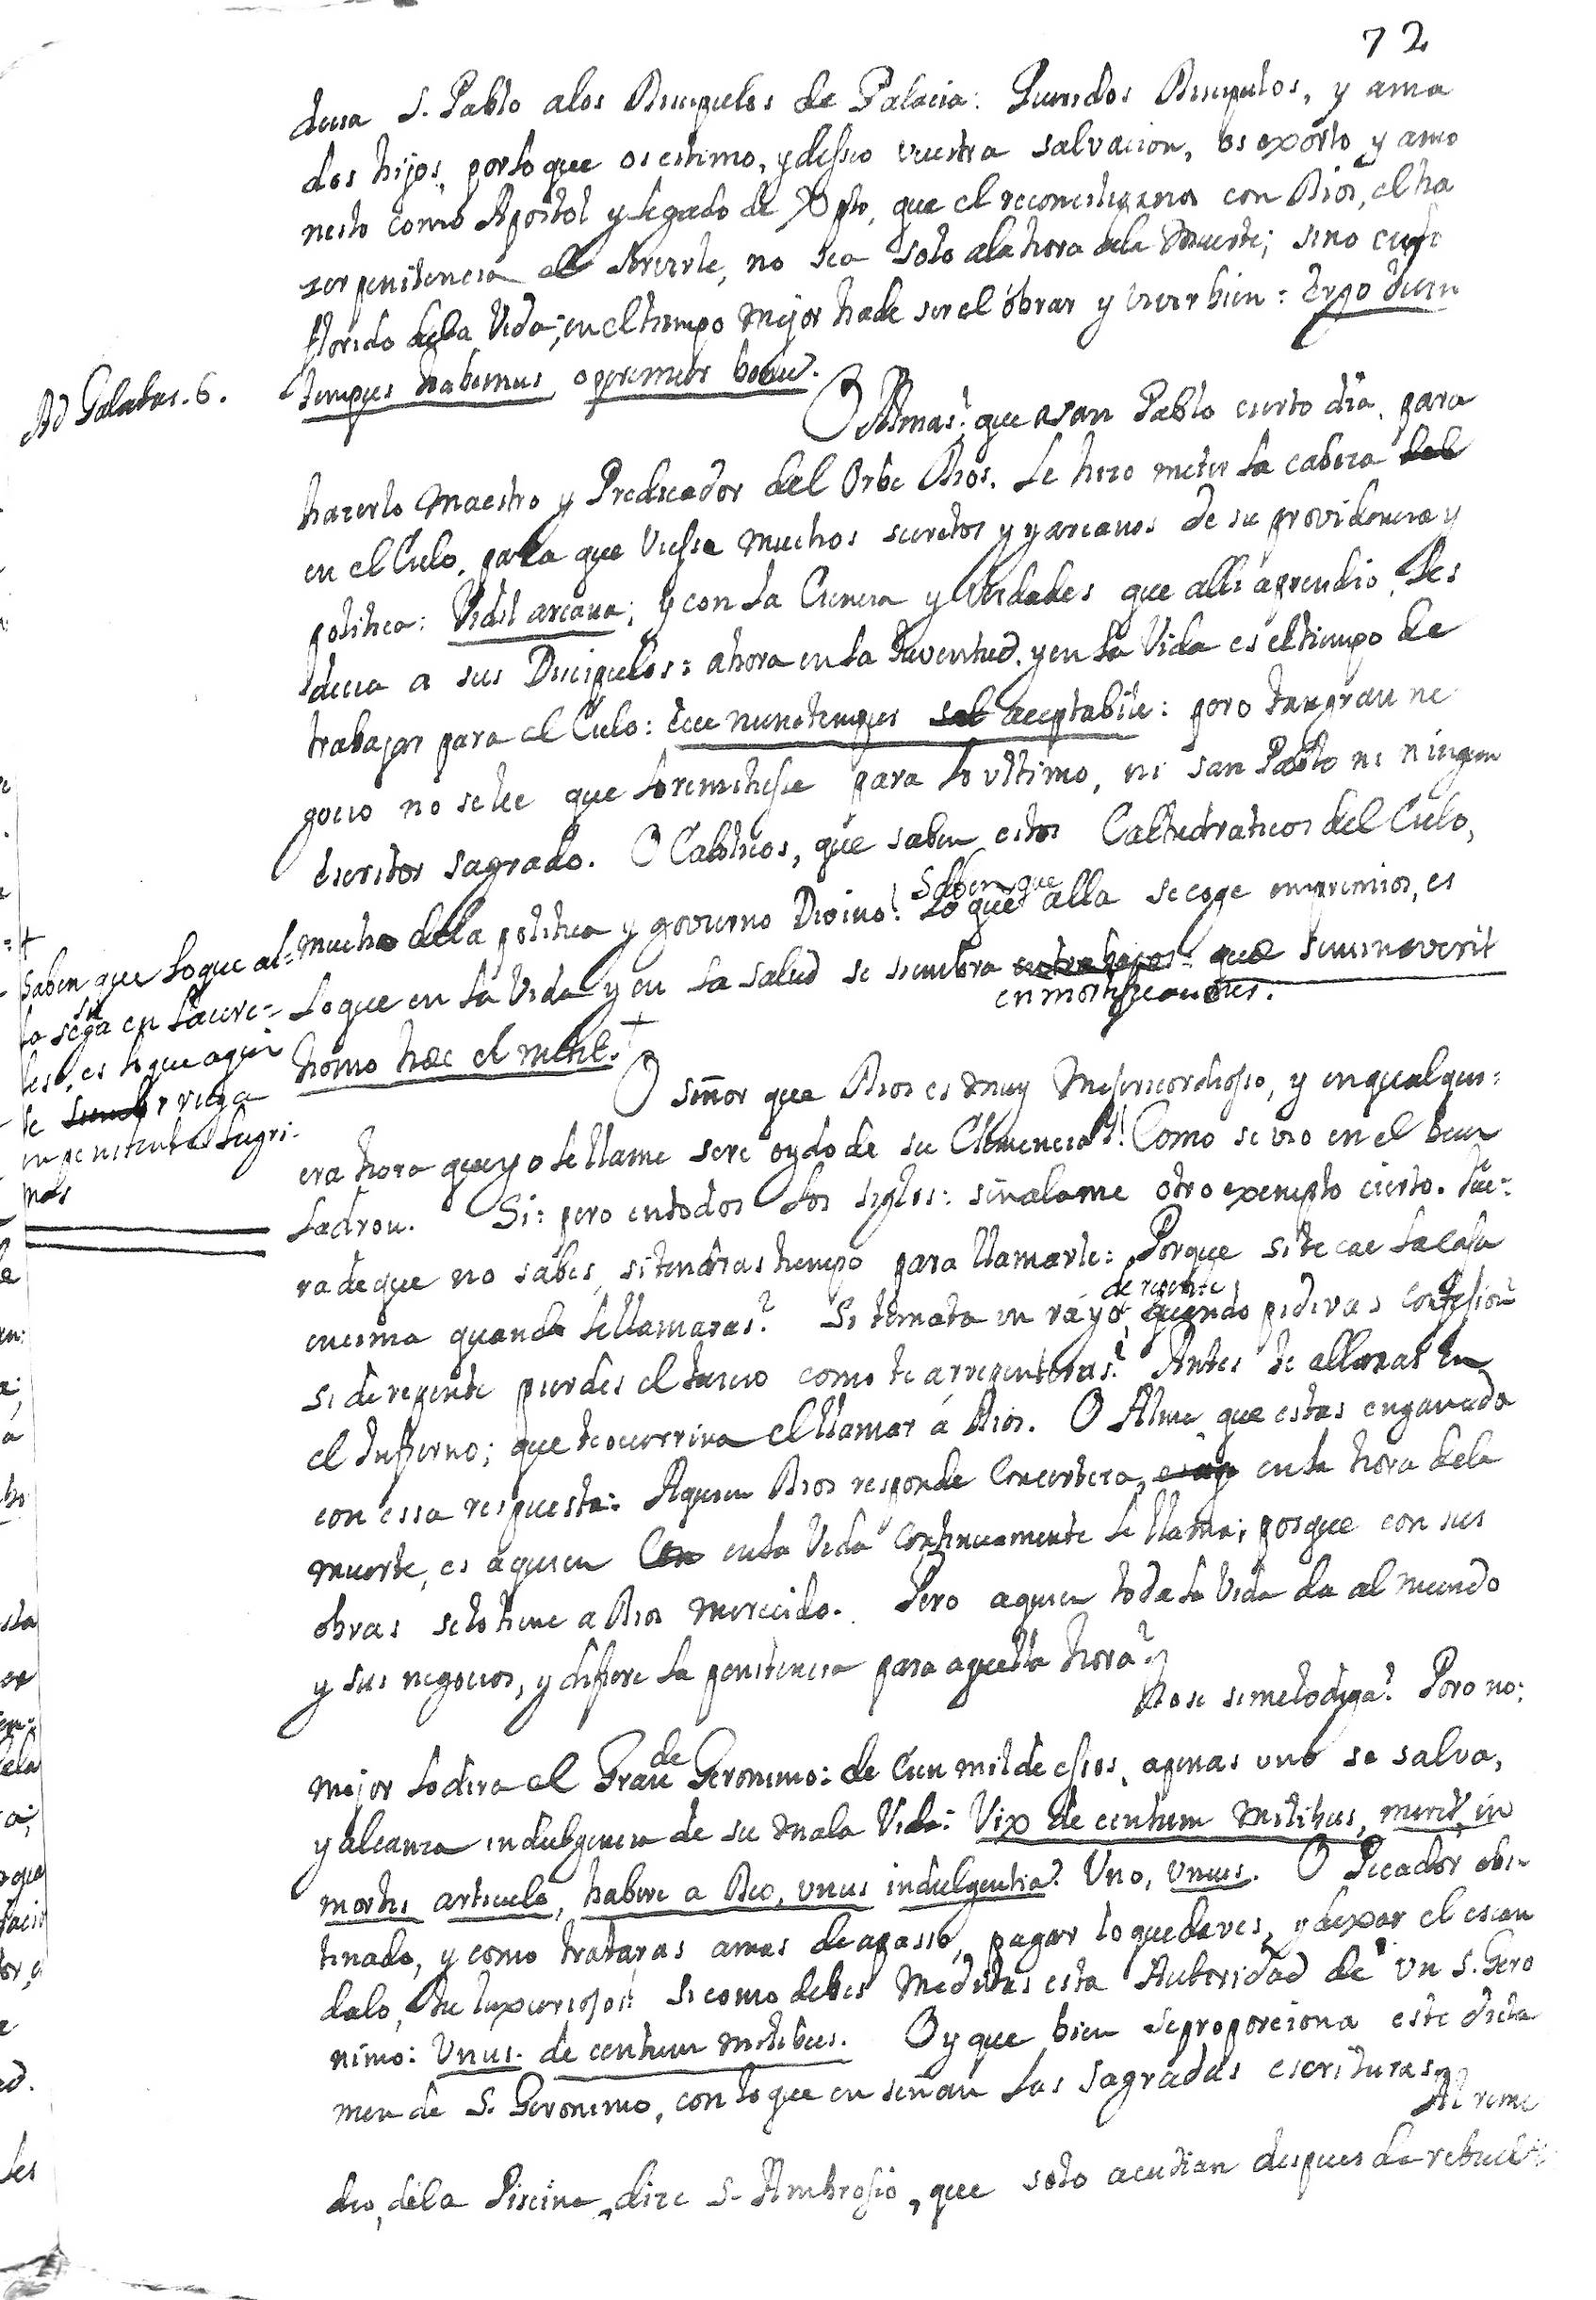 72
decia S. Pablo alos Discipulos de Galacia: Queridos Discipulos, y ama
dos hijos, porlo que os estimo, y desseo vuestra salvacion, os exorto y amo
nesto como Apostol y legado de Xpto, que el reconciliaros con Dios, el ha
zer penitencia el servirle, no sea solo ala hora dela Muerte; sino en lo
florido dela Vida; en el tiempo mejor hade ser el obrar y vivir bien: Ergo dum
tempus habemus operemur bonum.
Ad Galatas. 6.
O Almas! que a san Pablo cierto dia, para
hazerlo Maestro y Predicador del Orbe Dios. le hizo meter la cabeza del
en el Cielo, para que viesse muchos secretos y yarcanos de su providencia y
politica: Vidit arcana; y con la Ciencia y Verdades que alli aprendio, les
decia a sus Discipulos: ahora en la Juventud, y en la Vida es el tiempo de
trabajar para el Cielo: Ecce nunc tempus sal aceptabile: pero tangran ne
gocio no selee que loremitiesse para lo ultimo, ni san Pablo ni ningun
Escritor sagrado. O Catolicos, que saben estos Cathedraticos del Cielo,
mucho dela politica y govierno Divino! Saben que lo que alla secoge en premios, es
loque en la Vida y en la salud se siembra entrabajos: en mortificaciones. quæ seminaverit
homo hæc et metet. +
+
Saben que loque al=
la sega en laure=
les, es loque aqui
se siembr riega
en penitentes lagri-
mas
O señor que Dios es muy Misericordioso, y enqualqui=
era hora que yo lellame sere oydo de su Clemencia! Como se vio en el buen
Ladron. Si: pero entodos los siglos: señalame otro exemplo cierto. Fue=
ra deque no sabes, si tendras tiempo para llamarle: Porque si te cae lacasa
encima quando lellamaras? Si temata un rayo de repente, quando pediras confesion?
si derepente pierdes el juicio como te arrepentiras? Antes te allaras en
el Infierno; que teocurrira el llamar á Dios. O Alma que estas engañada
con essa respuesta: Aquien Dios responde Concerteza, en la hora dela
muerte, es aquien Con enla Vida continuamente le llama; porque con sus
obras selo tiene a Dios merecido. Pero aquien toda la Vida da al mundo
y sus negocios, y difiere la penitencia para aquella hora?
No se si melodiga? Pero no:
mejor lodira el Grande Geronimo: de Cien mil de essos, apenas uno se salva,
y alcanza indulgencia de su mala Vida: Vix de centum milibus, meret in
mortis articulo, habere a Deo, unus indulgentia? Uno, Unus. O Pecador obs-
tinado, y como trataras amas deapasso, pagar lo quedeves, y dexar el escan
dalo, tu luxurioso! si como debes Meditas esta Autoridad de un S. Gero
nimo: Unus. de centum milibus. O y que bien seproporciona este dicta
men de S. Geronimo, con lo que enseñan las sagradas escrituras.
Al reme
dio, dela Piscina, dize S. Ambrosio, que solo acudian despues de rebuel